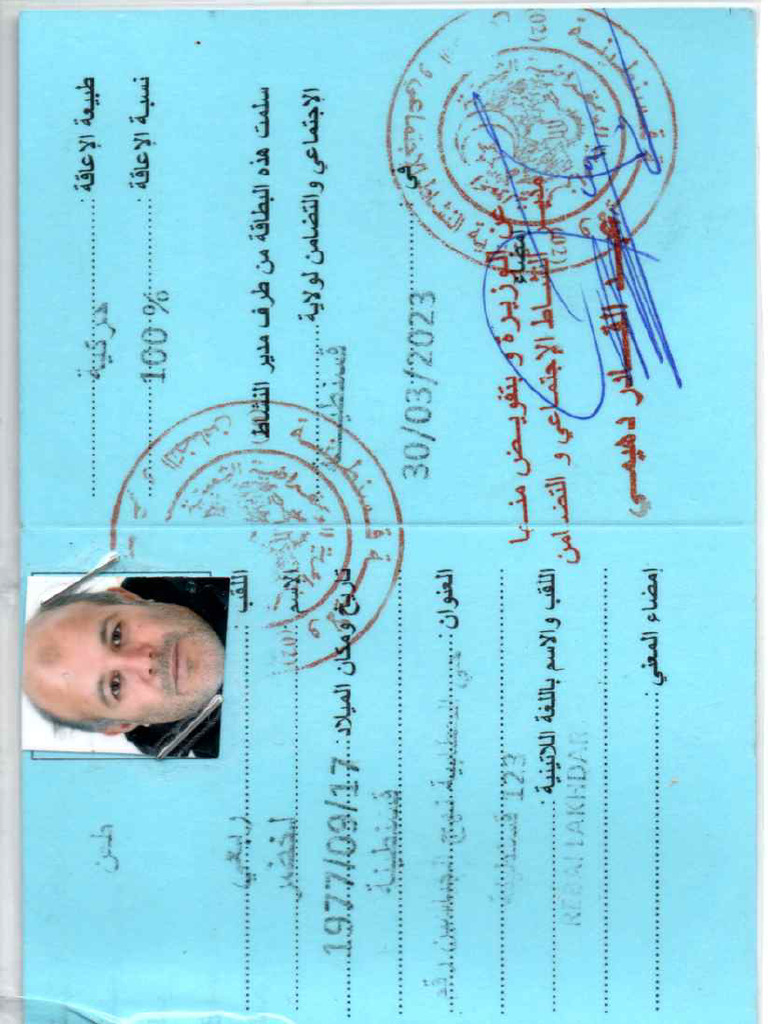 اللقب: ربعي
الاسم: لخضر
تاريخ ومكان الميلاد: 1977/09/17
قسنطينة
العنوان: حي
123 قسنطينة
اللقب والاسم باللغة اللاتينية:
REBAI LAKHDAR
إمضاء المعني:
طبيعة الإعاقة: حركية
نسبة الإعاقة: 100 %
سلمت هذه البطاقة من طرف مدير النشاط
الاجتماعي والتضامن لولاية: قسنطينة
في: 30/03/2023
إمضاء
عن الوزيرة و بتفويض منها
مدير النشاط الاجتماعي و التضامن
عبد القادر دهيمي